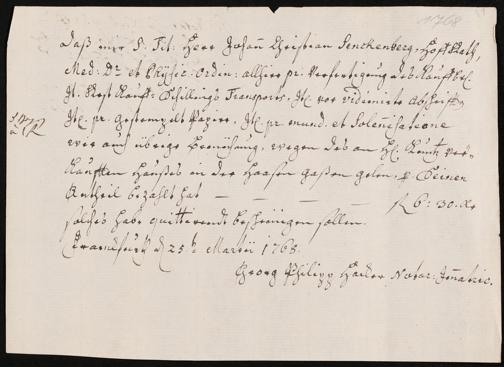 1768
Daß mir S. Tit: Herr Johann Christian Senckenberg, Hoff Rath,
Med: Dr. et Physic: Orden: allhier pr. Verfertigung des Kauffbr.
It. Rest Kauff-Schillings Transports, It. vor vidimirte Abschrifft,
It. pr. gestempelt Papier, It. pr. mund. et Solennisatione
wie auch übrige Bemühung, wegen des an H. ver-
kaufften Haußes in der Haasen gaßen geleg. Seinen
Antheil bezahlt hat — — — — — f. 6: 30. Xr
solches habe quittirendt bescheinigen sollen.
Franckfurth d. 25t. Martii 1768.
Georg Philipp Notar: Juratus.